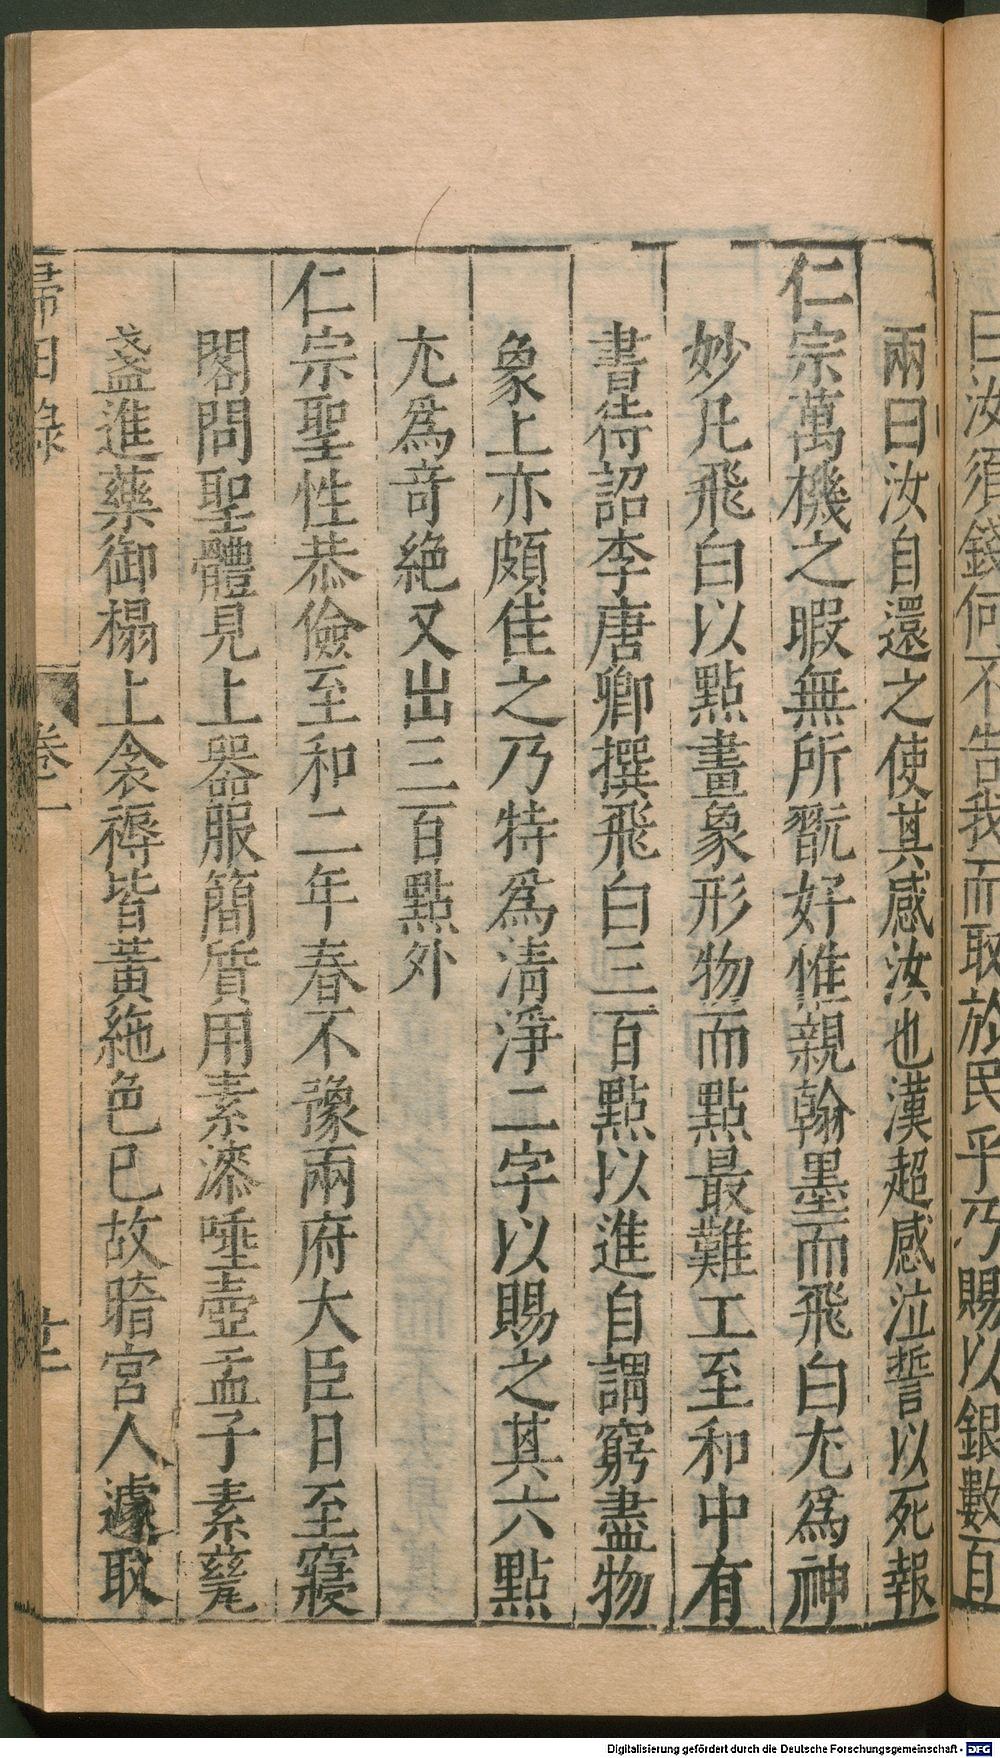 曰汝須錢何不告我而取於民乎乃賜以銀數百
兩曰汝自還之使其感汝也漢超感泣誓以死報
仁宗萬機之暇無所翫好惟親翰墨而飛白尤爲神
妙凡飛白以點畫象形物而點最難工至和中有
書待詔李唐卿撰飛白三百點以進自謂窮盡物
象上亦頗佳之乃特爲清淨二字以賜之其六點
尤爲奇絶又出三百點外
仁宗聖性恭儉至和二年春不豫兩府大臣日至寢
閣問聖體見上器服簡質用素漆唾壺盂子素甆
盞進藥御榻上衾褥皆黃絁色已故暗宮人遽取
歸田錄
卷一
Digitalisierung gefördert durch die Deutsche Forschungsgemeinschaft - DFG